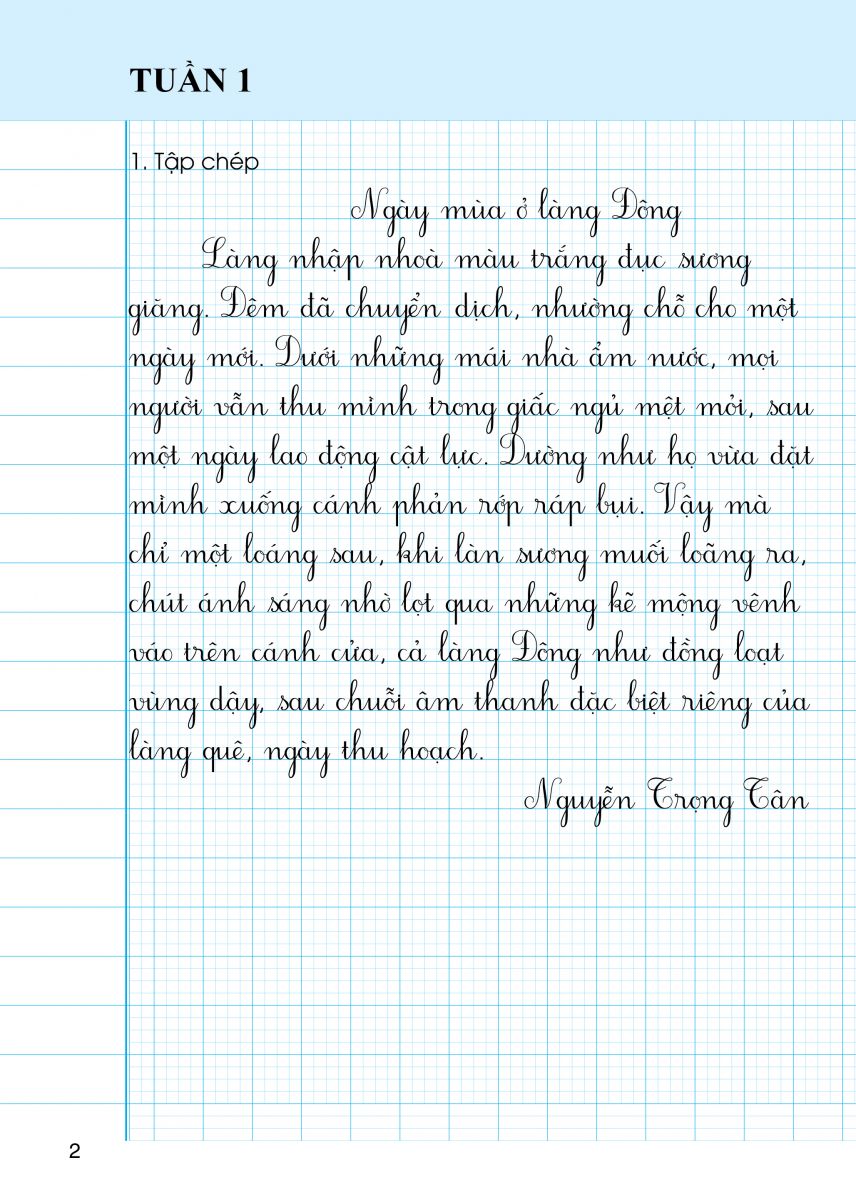 TUẦN 1
1. Tập chép
Ngày mùa ở làng Đông
Làng nhập nhoà màu trắng đục sương
giăng. Đêm đã chuyển dịch, nhường chỗ cho một
ngày mới. Dưới những mái nhà ẩm nước, mọi
người vẫn thu mình trong giấc ngủ mệt mỏi, sau
một ngày lao động cật lực. Dường như họ vừa đặt
mình xuống cánh phản rớp ráp bụi. Vậy mà
chỉ một loáng sau, khi làn sương muối loãng ra,
chút ánh sáng nhờ lọt qua những kẽ mộng vênh
váo trên cánh cửa, cả làng Đông như đồng loạt
vùng dậy, sau chuỗi âm thanh đặc biệt riêng của
làng quê, ngày thu hoạch.
Nguyễn Trọng Tân
2